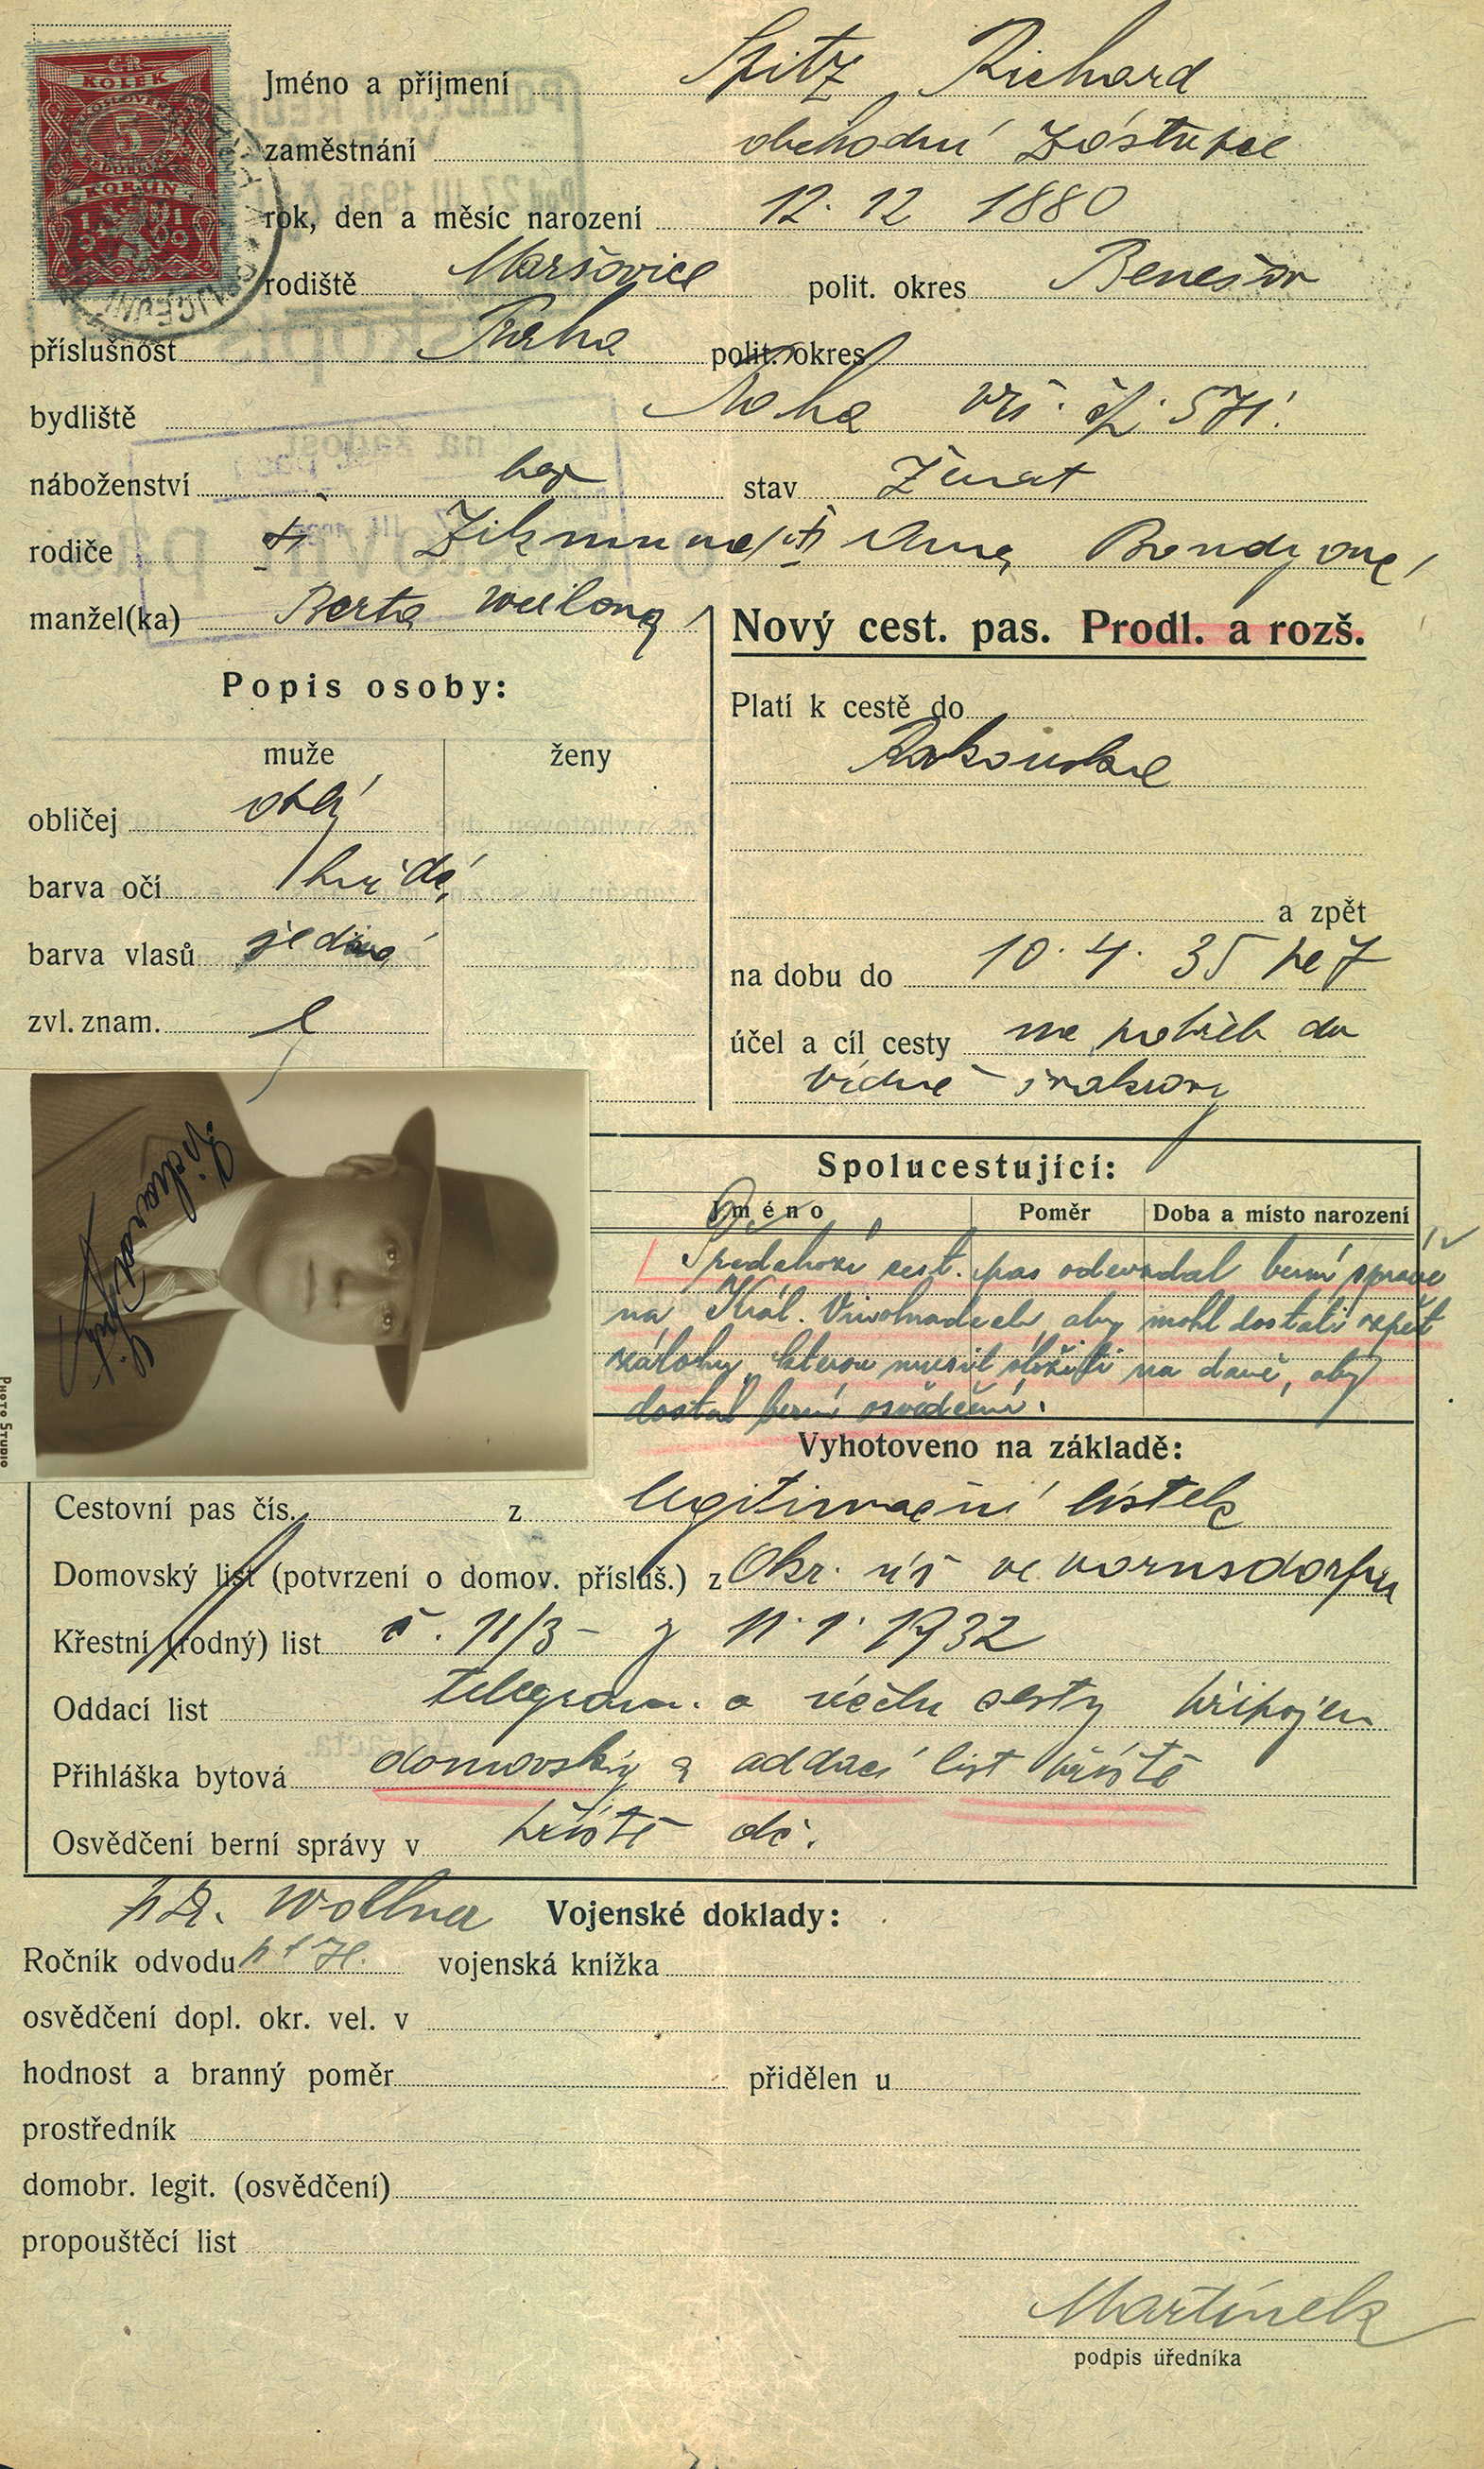 KOLEK
5
KORUN
Jméno a příjmení Spitz Richard
zaměstnání obchodní zástupce
rok, den a měsíc narození 12. 12 1880
rodiště Maršovice polit. okres Benešov
příslušnost Praha polit. okres
bydliště Praha čp. 571.
náboženství stav ženat
rodiče Zikmund Anna Bondyová
manžel(ka) Berta
Nový cest. pas. Prodl. a rozš.
Popis osoby:
Platí k cestě do
Rakouska
muže ženy
obličej oblý
barva očí hnědé
a zpět
barva vlasů šedivé
na dobu do 10. 4. 35
zvl. znam.
účel a cíl cesty na pohřeb do
Vídně
Spolucestující:
Jméno Poměr Doba a místo narození
Předchozí cest. pas odevzdal berní správě
na Král. Vinohradech, aby mohl dostati zpět
zálohu, kterou musil složiti na daně, aby
dostal berní osvědčení.
Richard Spitz
PHOTO STUDIO
Vyhotoveno na základě:
Cestovní pas čís. z legitimační lístek
Domovský list (potvrzení o domov. přísluš.) z Okr. úř ve Warnsdorfu
Křestní (rodný) list č. 11/3 - z 11. 1. 1932
Oddací list telegram. o účelu cesty připojen
Přihláška bytová domovský a oddací list příště
Osvědčení berní správy v příště
Wollner
Vojenské doklady:
Ročník odvodu vojenská knížka
osvědčení dopl. okr. vel. v
hodnost a branný poměr přidělen u
prostředník
domobr. legit. (osvědčení)
propouštěcí list
Martínek
podpis úředníka